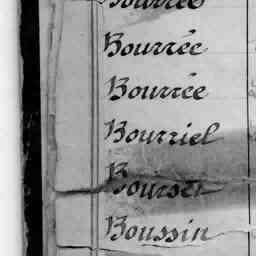 Bourrée
Bourrée
Bourrée
Bourriel
Bourser
Boussin